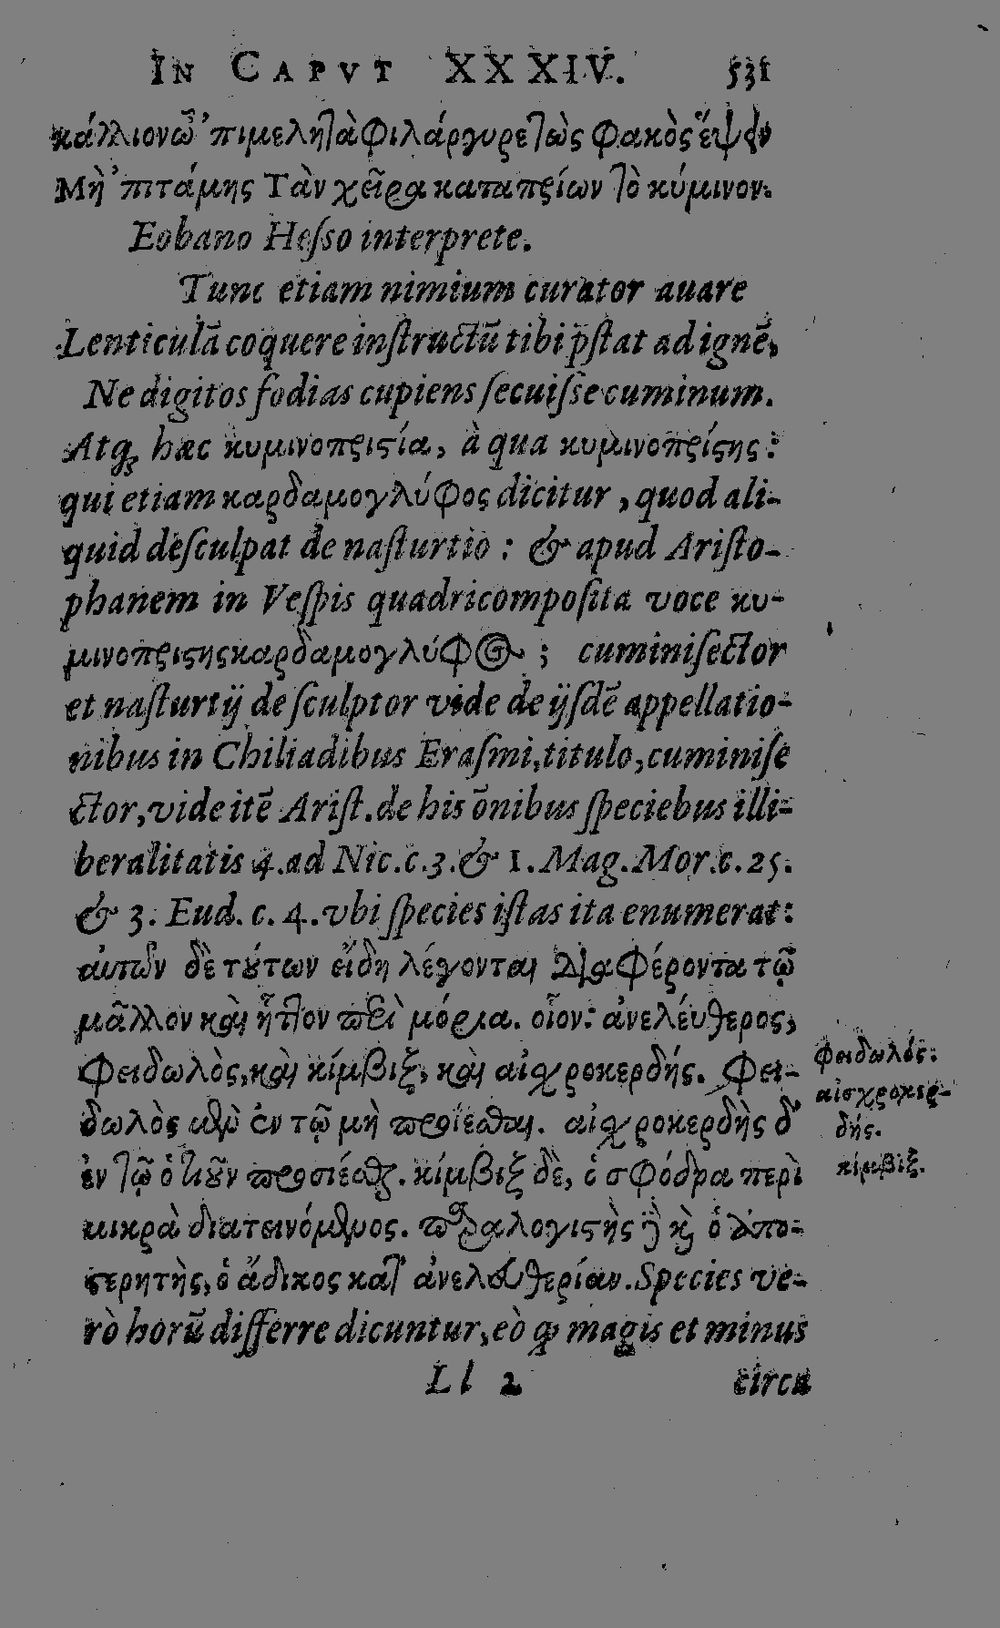 IN CAPVT XXXIV. 531
κάλλιον ὦ ’πιμεληῖὰ φιλάργυρε ῖὼς φακὸς ἕψειν
Μὴ ’πιτάμης Τὰν χεῖρα καταπρίων τὸ κύμινον.
Eobano Hesso interprete.
Tunc etiam nimium curator auare
Lenticulā coquere instructū tibi p̄stat ad ignē,
Ne digitos fodias cupiens secuisse cuminum.
Atq; hæc κυμινοπριστία, à qua κυμινοπρίστης:
qui etiam καρδαμογλύφος dicitur, quod ali-
quid desculpat de nasturtio: & apud Aristo-
phanem in Vespis quadricomposita voce κυ-
μινοπριστηςκαρδαμογλύφος; cuminisector
et nasturtij desculptor vide de ijsdē appellatio-
nibus in Chiliadibus Erasmi, titulo, cuminise
ctor, vide itē Arist. de his ōnibus speciebus illi-
beralitatis 4. ad Nic. c. 3. & 1. Mag. Mor. c. 25.
& 3. Eud. c. 4. vbi species istas ita enumerat:
αὐτῶν δὲ τούτων εἴδη λέγονται διαφέροντα τῷ
μᾶλλον καὶ ἧττον περὶ μόρια. οἷον: ἀνελέυθερος,
φειδωλὸς, καὶ κίμβιξ, καὶ αἰσχροκερδής. φει-
δωλὸς μὲν ἐν τῷ μὴ προίεσθαι. αἰσχροκερδὴς δ’
ἐν τῷ ὁτιοῦν προσιέσθαι. κίμβιξ δὲ, ὁ σφόδρα περὶ
μικρὰ διατεινόμενος. παραλογιστὴς δὲ καὶ ὁ ἀπο-
στερητὴς, ὁ ἄδικος κατ’ ἀνελευθερίαν. Species ve-
rò horū differre dicuntur, eò quod magis et minus
Ll 2 circa
φειδωλός:
αἰσχροκερ-
δής.
κίμβιξ.